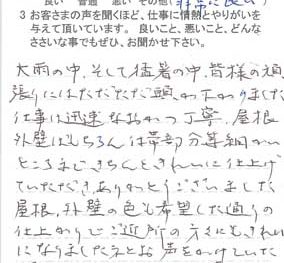 良い 普通 悪い その他(非常に良い)
3 お客さまの声を聞くほど、仕事に情熱とやりがいを
与えて頂いています。 良いこと、悪いこと、どんな
ささいな事でもぜひ、お聞かせ下さい。
大雨の中、そして猛暑の中、皆様の頑
張りにはただただ頭が下がりました
仕事は迅速なおかつ丁寧、屋根
外壁はもちろんは帯部分等細かい
ところまできちんときれいに仕上げ
ていただきありがとうございました
屋根、外壁の色も希望した通りの
仕上がりでご近所の方々にもきれい
になりましたネとお声をかけていた